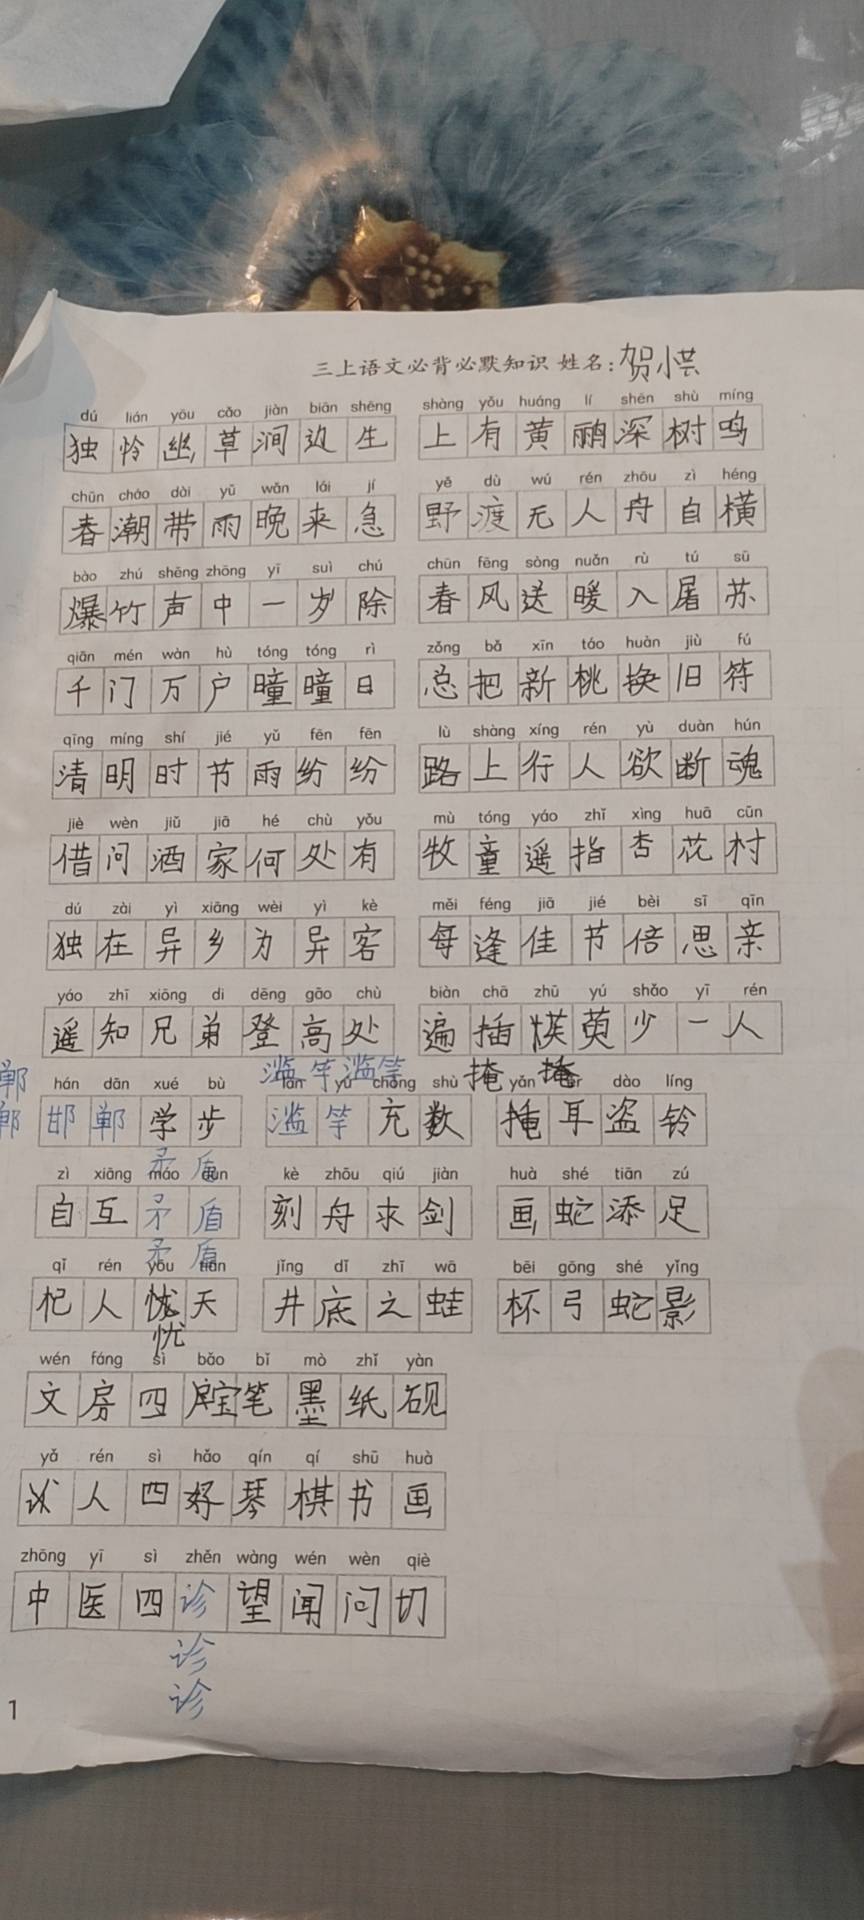 三上语文必背必默知识 姓名:贺小芸
dú lián yōu cǎo jiàn biān shēng shàng yǒu huáng lí shēn shù míng
独怜幽草涧边生 上有黄鹂深树鸣
chūn cháo dài yǔ wǎn lái jí yě dù wú rén zhōu zì héng
春潮带雨晚来急 野渡无人舟自横
bào zhú shēng zhōng yī suì chú chūn fēng sòng nuǎn rù tú sū
爆竹声中一岁除 春风送暖入屠苏
qiān mén wàn hù tóng tóng rì zǒng bǎ xīn táo huàn jiù fú
千门万户曈曈日 总把新桃换旧符
qīng míng shí jié yǔ fēn fēn lù shàng xíng rén yù duàn hún
清明时节雨纷纷 路上行人欲断魂
jiè wèn jiǔ jiā hé chù yǒu mù tóng yáo zhǐ xìng huā cūn
借问酒家何处有 牧童遥指杏花村
dú zài yì xiāng wèi yì kè měi féng jiā jié bèi sī qīn
独在异乡为异客 每逢佳节倍思亲
yáo zhī xiōng di dēng gāo chù biàn chā zhū yú shǎo yī rén
遥知兄弟登高处 遍插萸少一人
郸 滥竽滥竽 掩 掩
hán dān xué bù làn yú chōng shù yǎn ěr dào líng
郸 邯郸学步 滥竽充数 掩耳盗铃
矛盾
zì xiāng máo dùn kè zhōu qiú jiàn huà shé tiān zú
自互矛盾 刻舟求剑 画蛇添足
矛盾
qǐ rén yōu tiān jǐng dǐ zhī wā bēi gōng shé yǐng
杞人忧天 井底之蛙 杯弓蛇影
忧
wén fáng sì bǎo bǐ mò zhǐ yàn
文房四宝笔墨纸砚
yǎ rén sì hǎo qín qí shū huà
人四好琴棋书画
zhōng yī sì zhěn wàng wén wèn qiè
中医四诊望闻问切
诊
诊
1